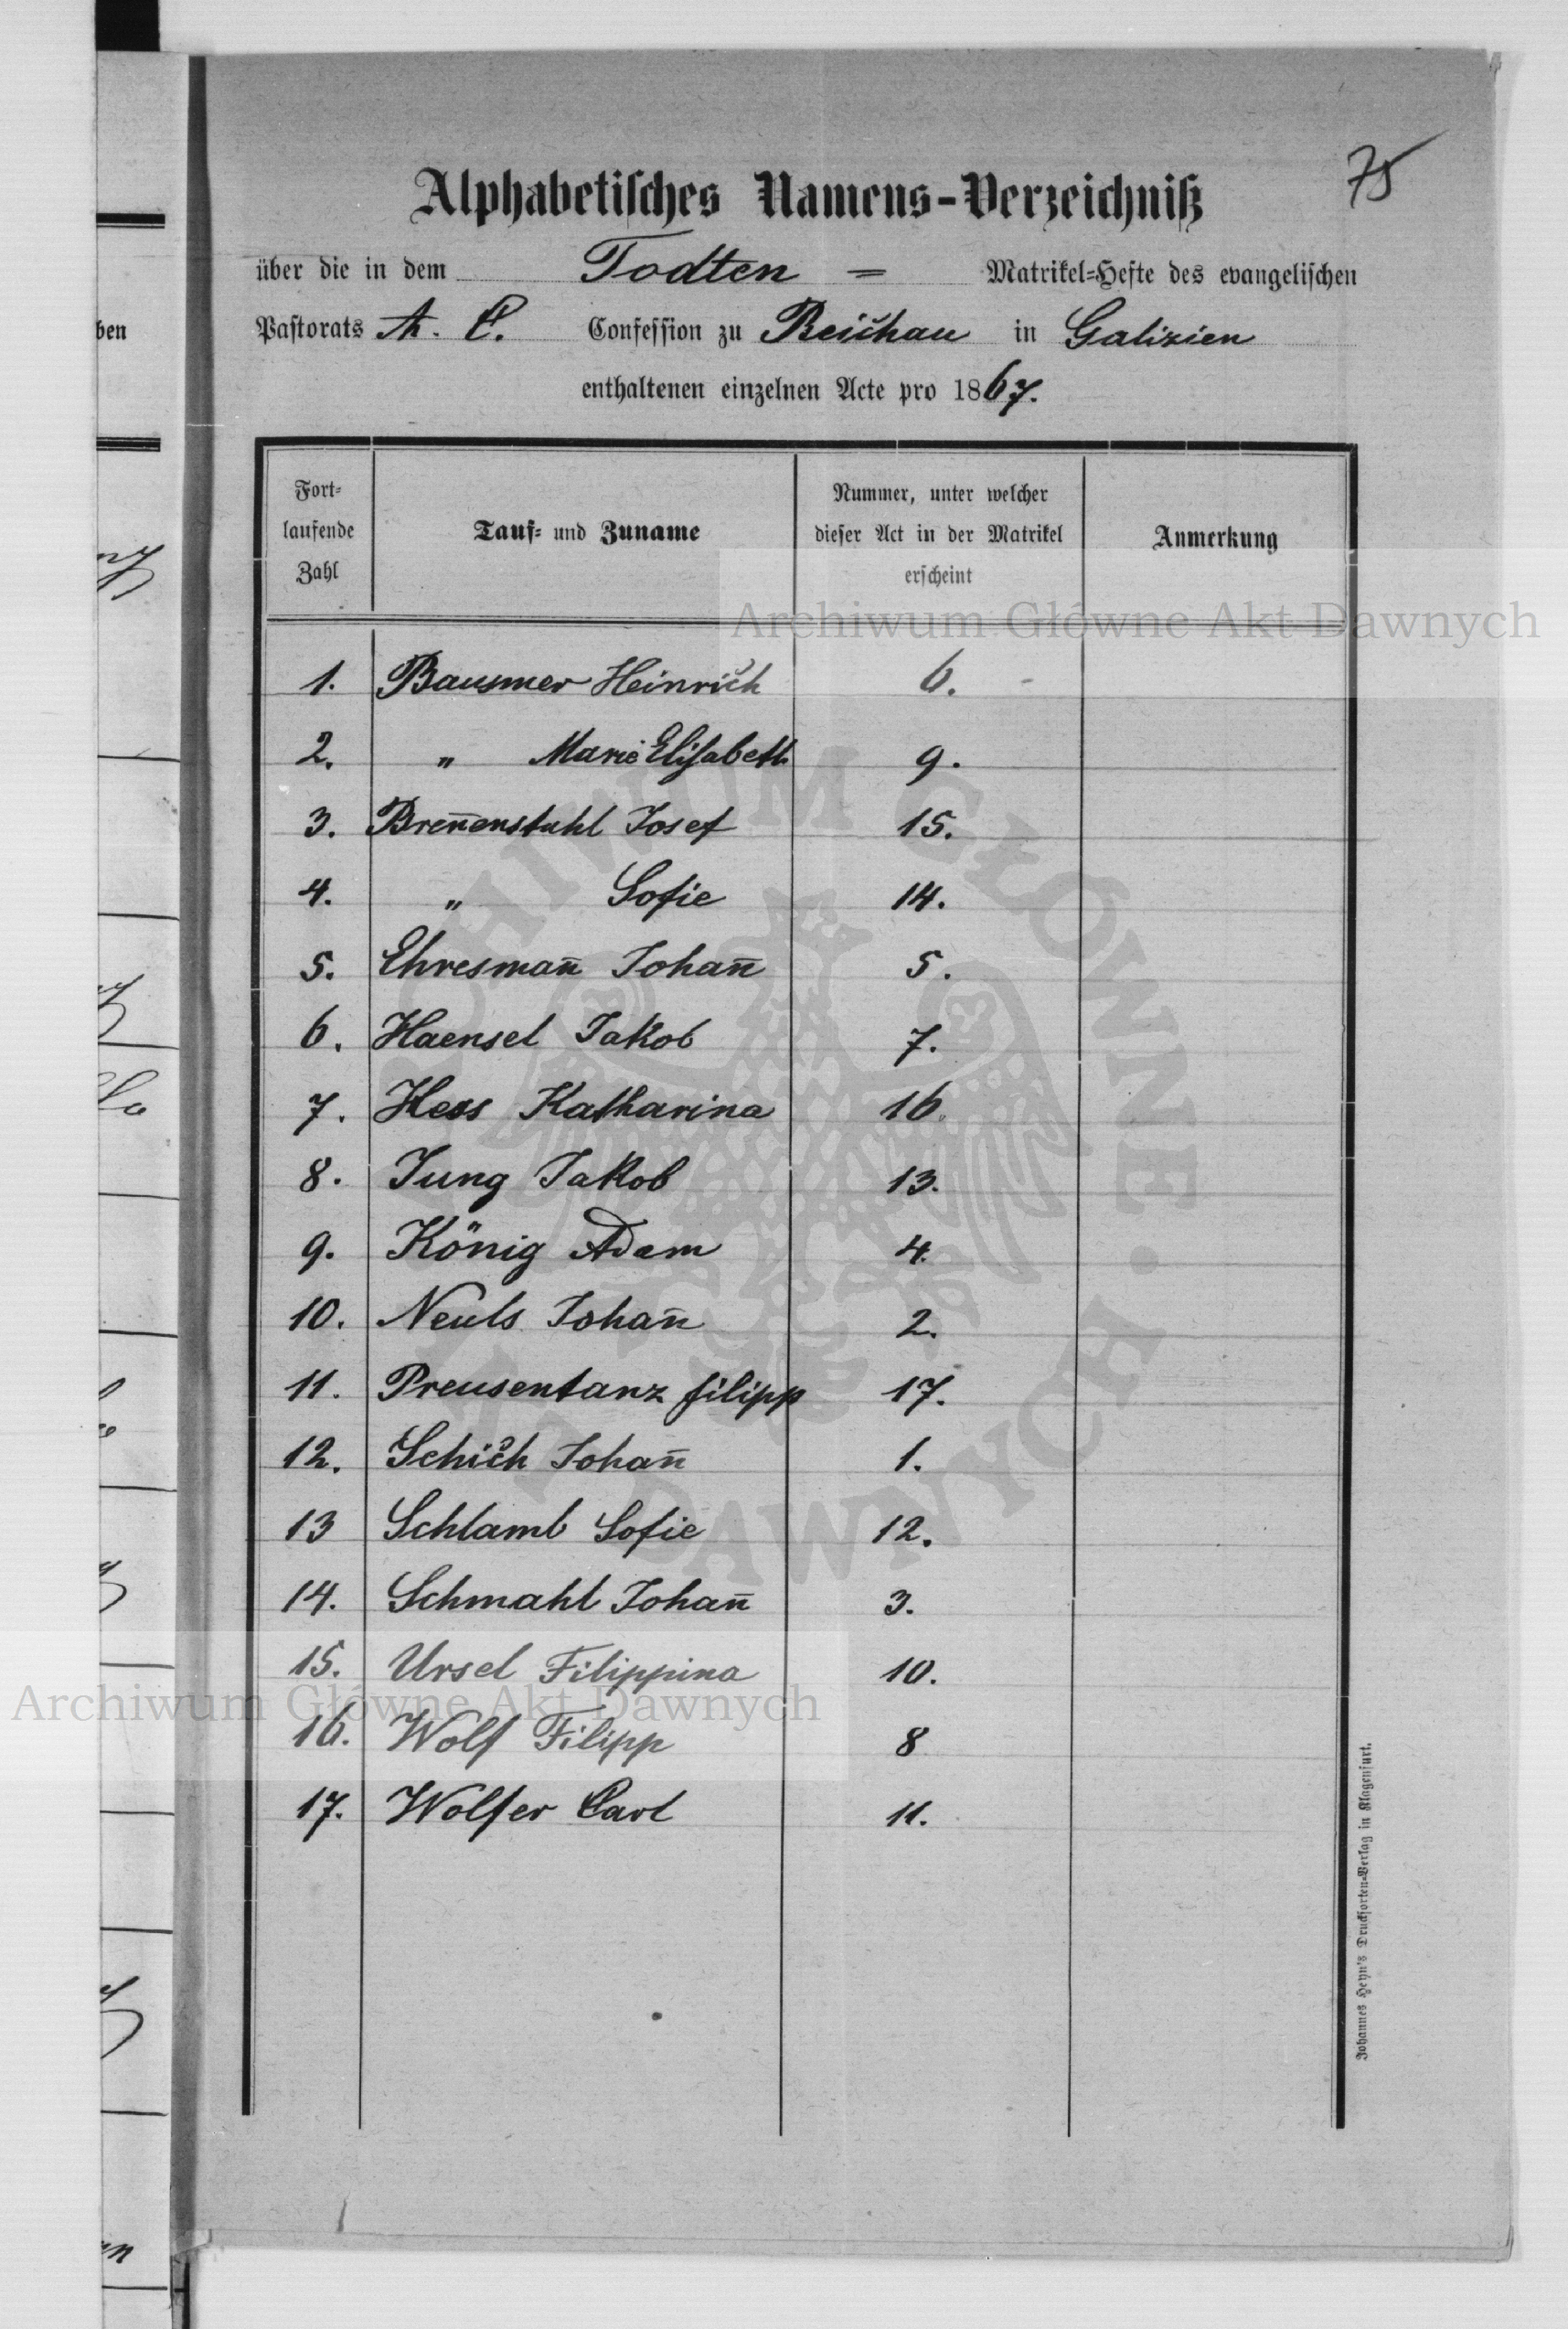 75
Alphabetisches Namens-Verzeichniß
über die in dem Todten = Matrikel=Hefte des evangelischen
Pastorats A. C. Confession zu Reichau in Galizien
enthaltenen einzelnen Acte pro 1867.
Fort=
laufende
Zahl
Tauf= und Zuname
Nummer, unter welcher
dieser Act in der Matrikel
erscheint
Anmerkung
1. Bausmer Heinrich 6.
2. „ Marie Elisabeth 9.
3. Breñenstuhl Josef 15.
4. „ Sofie 14.
5. Ehresmañ Johañ 5.
6. Haensel Jakob 7.
7. Hess Katharina 16.
8. Jung Jakob 13.
9. König Adam 4.
10. Neuls Johañ 2.
11. Preusentanz filipp 17.
12. Schich Johañ 1.
13 Schlamb Sofie 12.
14. Schmahl Johañ 3.
15. Ursel Filippina 10.
16. Wolf Filipp 8
17. Wolfer Carl 11.
Johannes Heyn's Drucksorten=Verlag in Klagenfurt.
Archiwum Główne Akt Dawnych
Archiwum Główne Akt Dawnych
ben